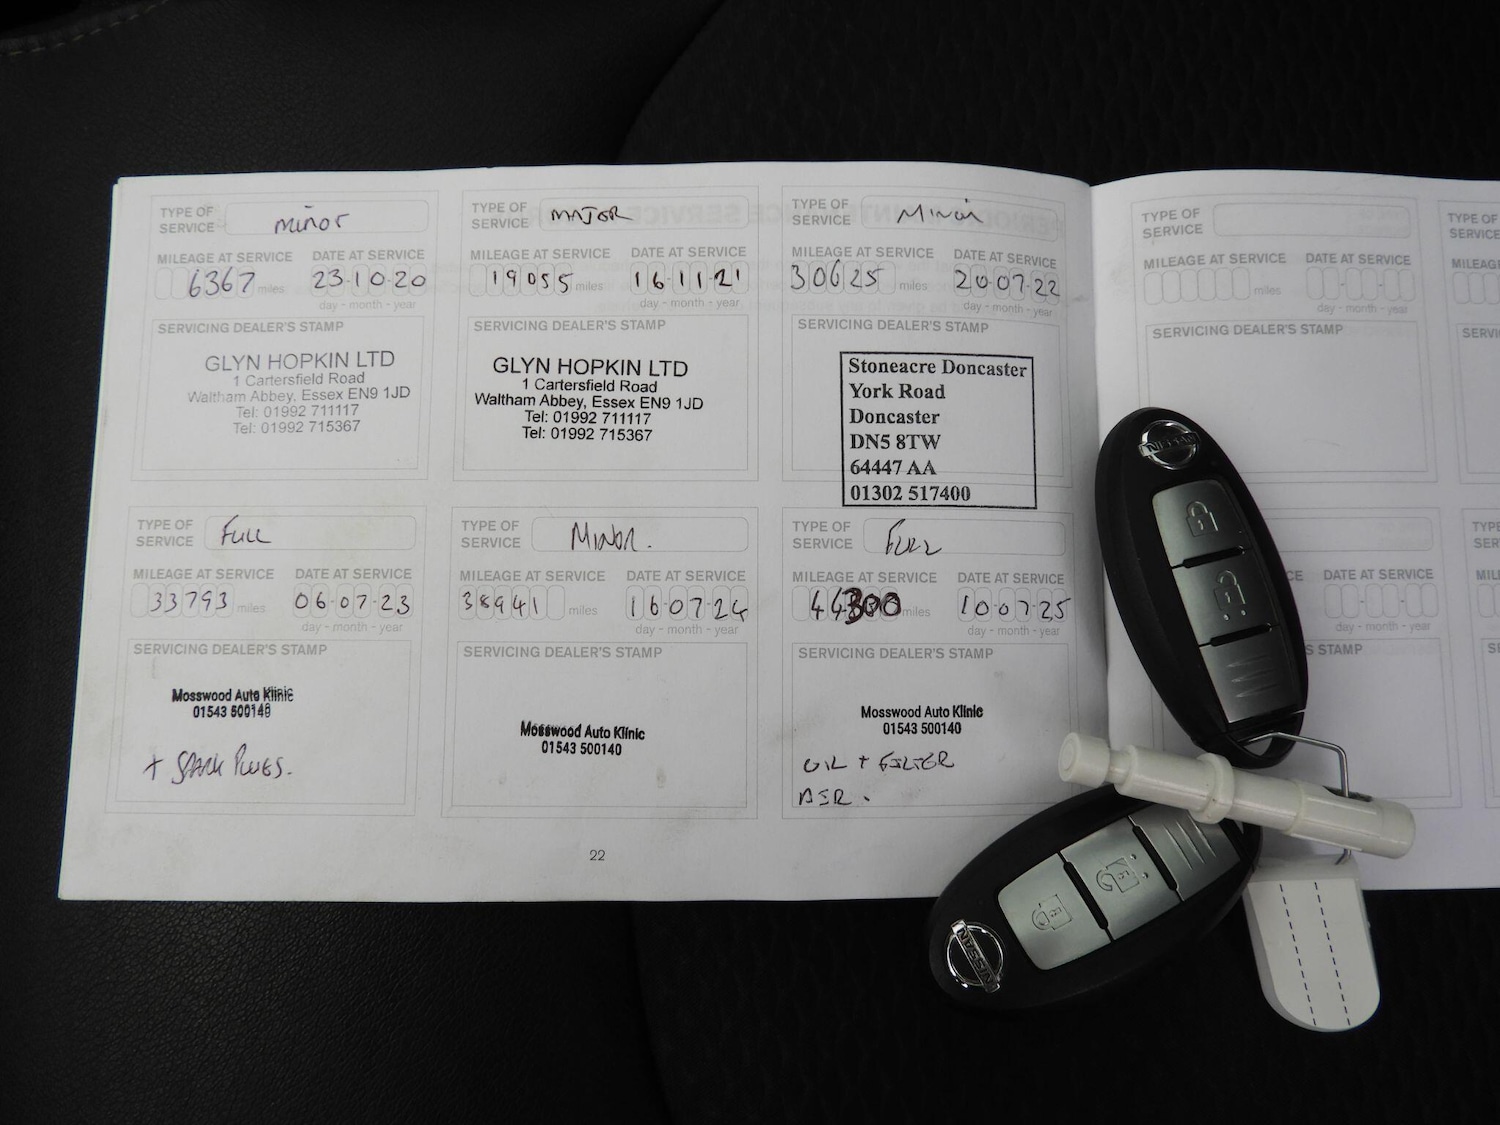 TYPE OF SERVICE minor
MILEAGE AT SERVICE DATE AT SERVICE
6367 miles 23·10·20
day - month - year
SERVICING DEALER'S STAMP
GLYN HOPKIN LTD
1 Cartersfield Road
Waltham Abbey, Essex EN9 1JD
Tel: 01992 711117
Tel: 01992 715367
TYPE OF SERVICE MAJOR
MILEAGE AT SERVICE DATE AT SERVICE
19055 miles 16·11·21
day - month - year
SERVICING DEALER'S STAMP
GLYN HOPKIN LTD
1 Cartersfield Road
Waltham Abbey, Essex EN9 1JD
Tel: 01992 711117
Tel: 01992 715367
TYPE OF SERVICE Minor
MILEAGE AT SERVICE DATE AT SERVICE
30625 miles 20·07·22
day - month - year
SERVICING DEALER'S STAMP
Stoneacre Doncaster
York Road
Doncaster
DN5 8TW
64447 AA
01302 517400
TYPE OF SERVICE FULL
MILEAGE AT SERVICE DATE AT SERVICE
33793 miles 06·07·23
day - month - year
SERVICING DEALER'S STAMP
Mosswood Auto Klinic
01543 500140
+ SPARK PLUGS.
TYPE OF SERVICE MINOR.
MILEAGE AT SERVICE DATE AT SERVICE
38941 miles 16·07·24
day - month - year
SERVICING DEALER'S STAMP
Mosswood Auto Klinic
01543 500140
TYPE OF SERVICE FULL
MILEAGE AT SERVICE DATE AT SERVICE
44300 miles 10·07·25
day - month - year
SERVICING DEALER'S STAMP
Mosswood Auto Klinic
01543 500140
OIL + FILTER
AIR.
22
TYPE OF SERVICE
MILEAGE AT SERVICE DATE AT SERVICE
miles
day - month - year
SERVICING DEALER'S STAMP
TYPE OF
SERVICE
DATE AT SERVICE
day - month - year
STAMP
NISSAN
NISSAN